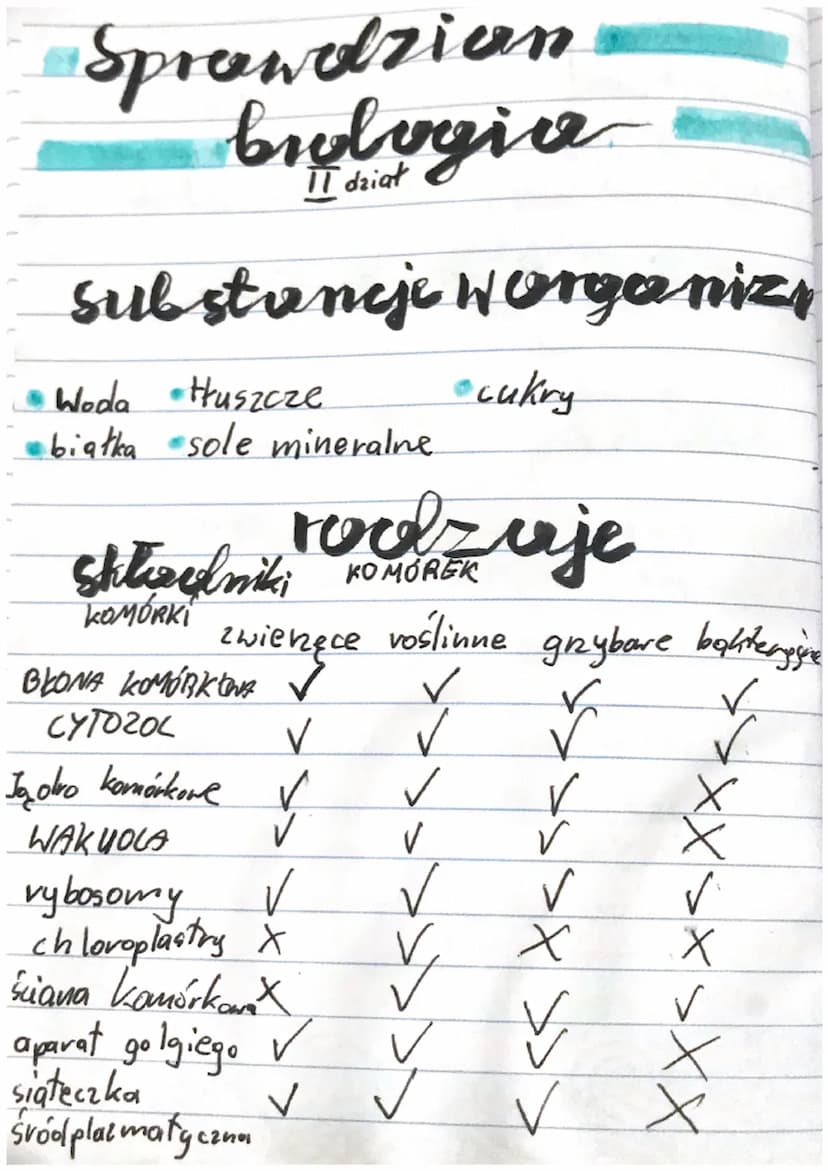 Sprawdzian
biologia
II dział
substancje w organizm
• Woda • tłuszcze • cukry
• białka • sole mineralne
rodzaje
składniki KOMÓREK
KOMÓRKI
zwierzęce roślinne grzybowe bakteryjne
BŁONA KOMÓRKOWA ✓ ✓ ✓ ✓
CYTOZOL ✓ ✓ ✓ ✓
Jądro komórkowe ✓ ✓ ✓ X
WAKUOLA ✓ ✓ ✓ X
rybosomy ✓ ✓ ✓ ✓
chloroplastry X ✓ X X
ściana komórkowa X ✓ ✓ ✓
aparat golgiego ✓ ✓ ✓ X
siąteczka
śródplazmatyczna ✓ ✓ ✓ X